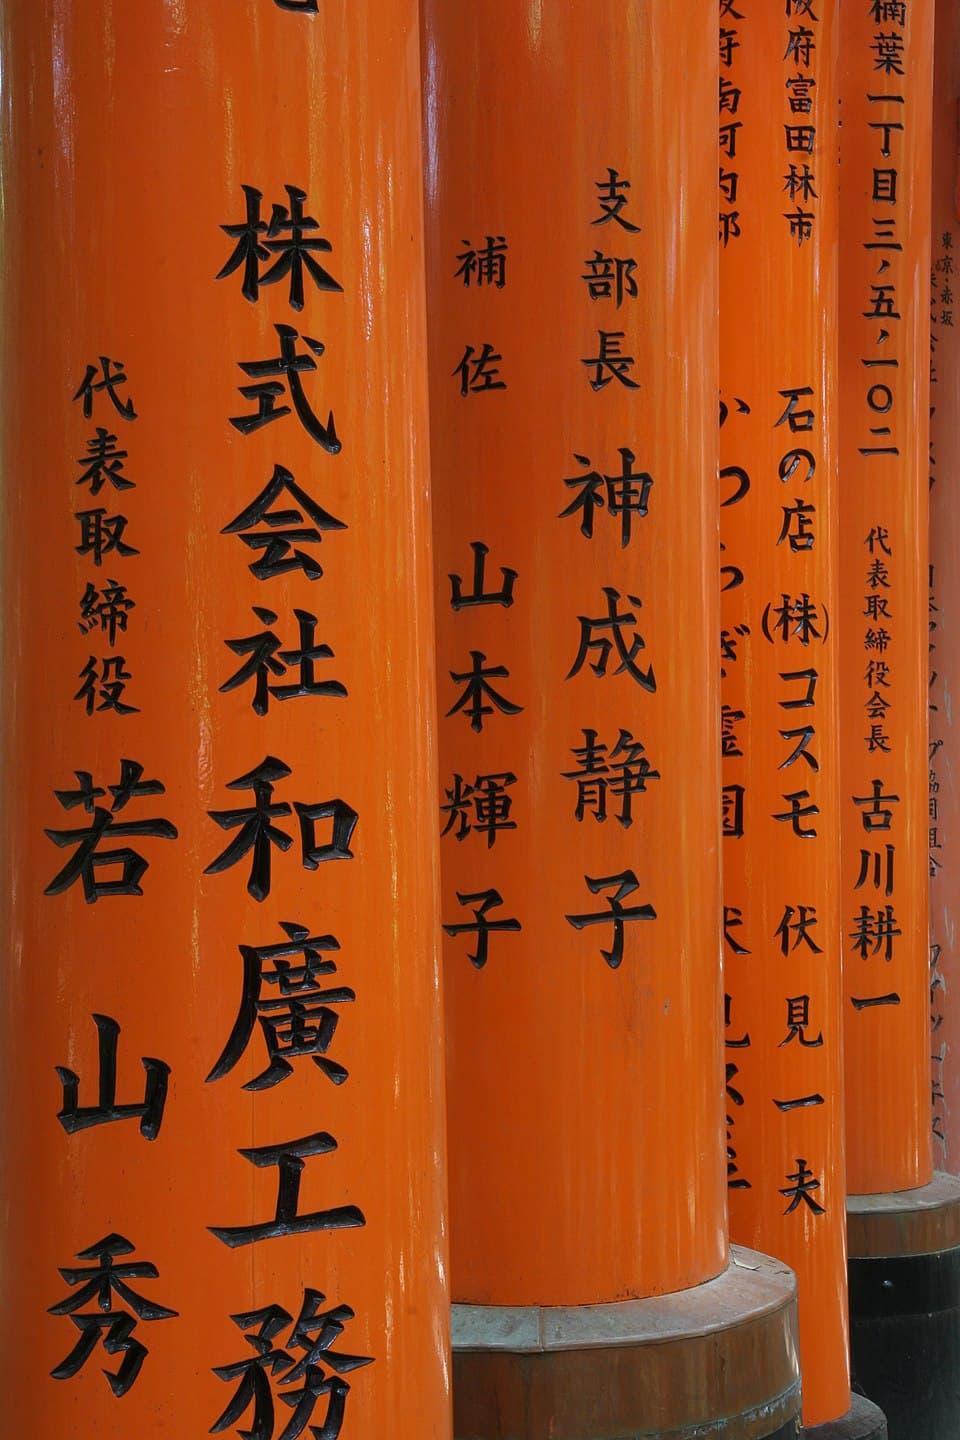 株式会社和廣工務
代表取締役 若山秀
支部長 神成静子
補佐 山本輝子
阪府富田林市
石の店(株)コスモ 伏見一夫
府南河内郡
つらぎ霊園
楠葉一丁目三、五、一〇二
代表取締役会長 古川耕一
東京・赤坂